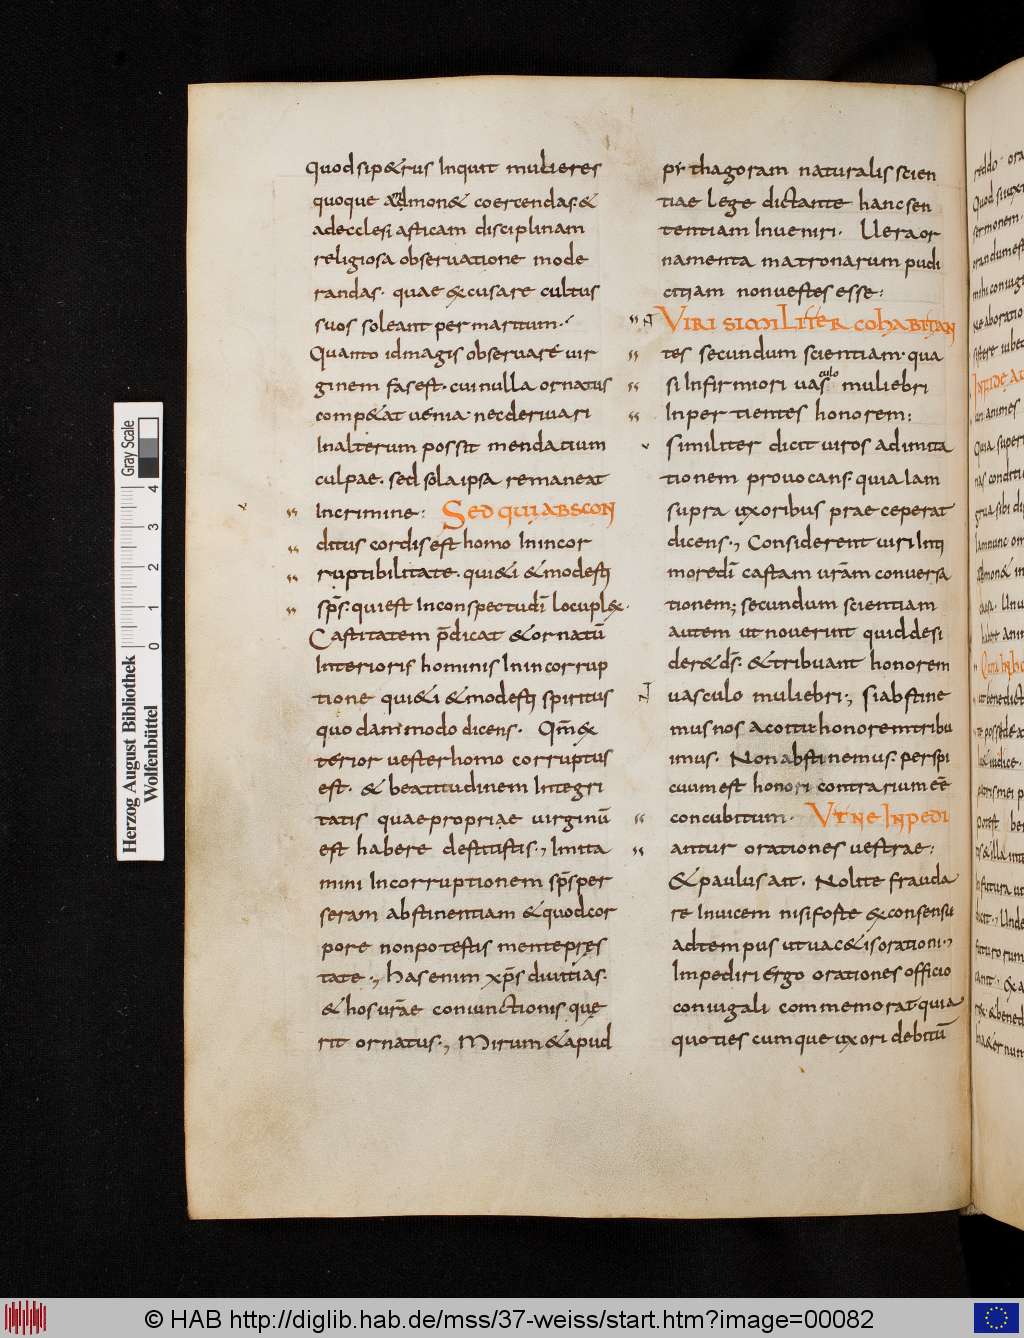 quodsip&rus Inquit mulieres
quoque admon& coercendas. &
adecclesiasticam disciplinam
religiosa obseruatione mode
randas. quae excusare cultus
suos soleant per maritum.
Quanto idmagis obseruare uir
ginem fasest. cui nulla ornatus
comp&at uenia. necderiuari
Inalterum possit mendatium
culpae. sed sola ipsa remaneat
Incrimine: SED QUI ABSCON
ditus cordis est homo Inincor
ruptibilitate. qui&i &modesti
sp̅s. qui est Inconspectu di̅ locupl&.
Castitatem p̅dicat &ornatu̅
Interioris hominis Inincorrup
tione qui&i &modesti spiritus
quodammodo dicens. Qm̅ ex
terior uester homo corruptus
est. & beatitudinem Integri
tatis quae propriae uirginu̅
est habere destitistis., Imita
mini Incorruptionem sp̅s per
seram abstinentiam &quod cor
pore non potestis mente pręs
tate., has enim xp̅s diuitias.
&hos ur̅ae coniunctionis quę
rit ornatus., Mirum &apud
pithagoram naturalis scien
tiae lege dictante hanc sen
tentiam Inueniri. Uera or
namenta matronarum pudi
citiam non uestes esse:
VIRI SIMILITER COHABITAN
tes secundum scientiam. qua
si Infirmiori uasculo muliebri
Inpertientes honorem:
similiter dicit uiros ad imita
tionem prouocans. quia Iam
supra uxoribus praeceperat
dicens., Considerent uiri Inti
more di̅ castam ur̅am conuersa
tionem; secundum scientiam
autem ut nouerint quid desi
der& ds̅. &tribuant honorem
uasculo muliebri; si abstine
mus nos a coitu honorem tribu
imus. Non abstinemus. perspi
cuum est honori contrarium ee̅
concubitum. UT NE INPEDI
antur orationes uestrae:
&paulus ait. Nolite frauda
re Inuicem nisi forte ex consensu
ad tempus ut uac&is orationi.,
Impediri ergo orationes officio
coniugali commemorat quia
quotiescumque uxori debitu̅
Gray Scale
4
3
2
1
0
Herzog August Bibliothek
Wolfenbüttel
© HAB http://diglib.hab.de/mss/37-weiss/start.htm?image=00082